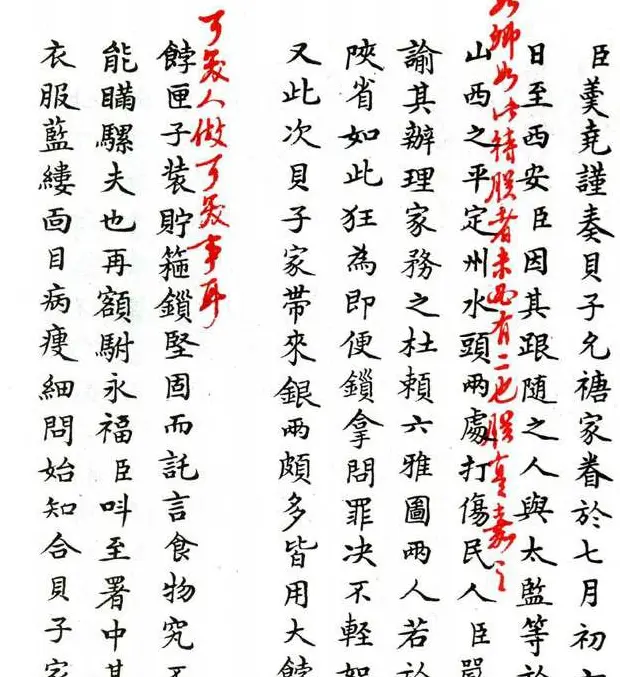 臣羹堯謹奏貝子允禟家眷於七月初
日至西安臣因其跟隨之人與太監等於
如卿如此待朕者未必有二也朕真嘉之
山西之平定州水頭兩處打傷民人臣嚴
諭其辦理家務之杜賴六雅圖兩人若於
陝省如此狂為即便鎖拿問罪决不輕
又此次貝子家帶來銀兩頗多皆用大餑
可笑人做可笑事耳
餑匣子装貯箍鎖堅固而託言食物究不
能瞞騾夫也再額駙永福臣呌至署中其
衣服藍縷面目病瘦細問始知合貝子家